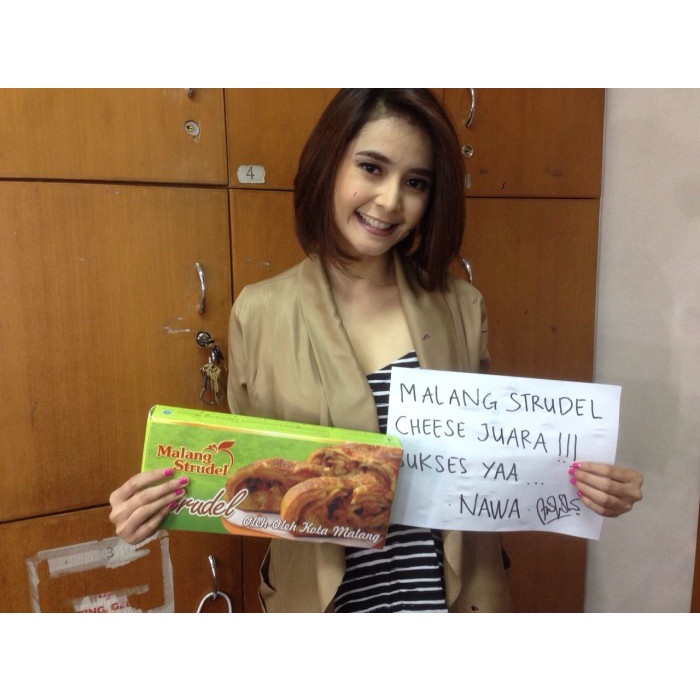 4
MALANG STRUDEL
CHEESE JUARA !!!
SUKSES YAA ...
NAWA
Malang
Strudel
Strudel
Oleh-Oleh Kota Malang
3